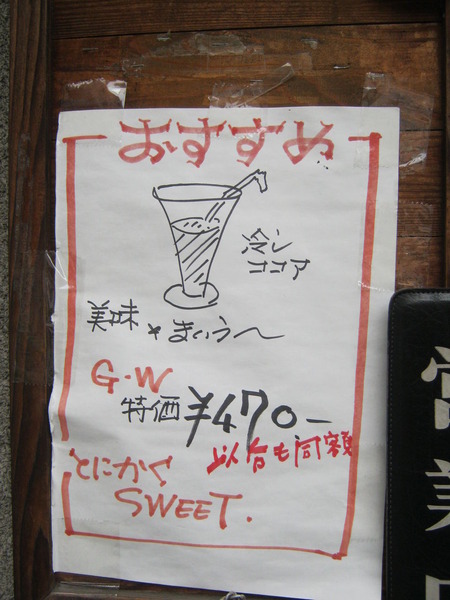 おすすめ
冷シ
ココア
美味★まいう〜
G・W
特価 ¥470-
も同額
とにかく
SWEET.